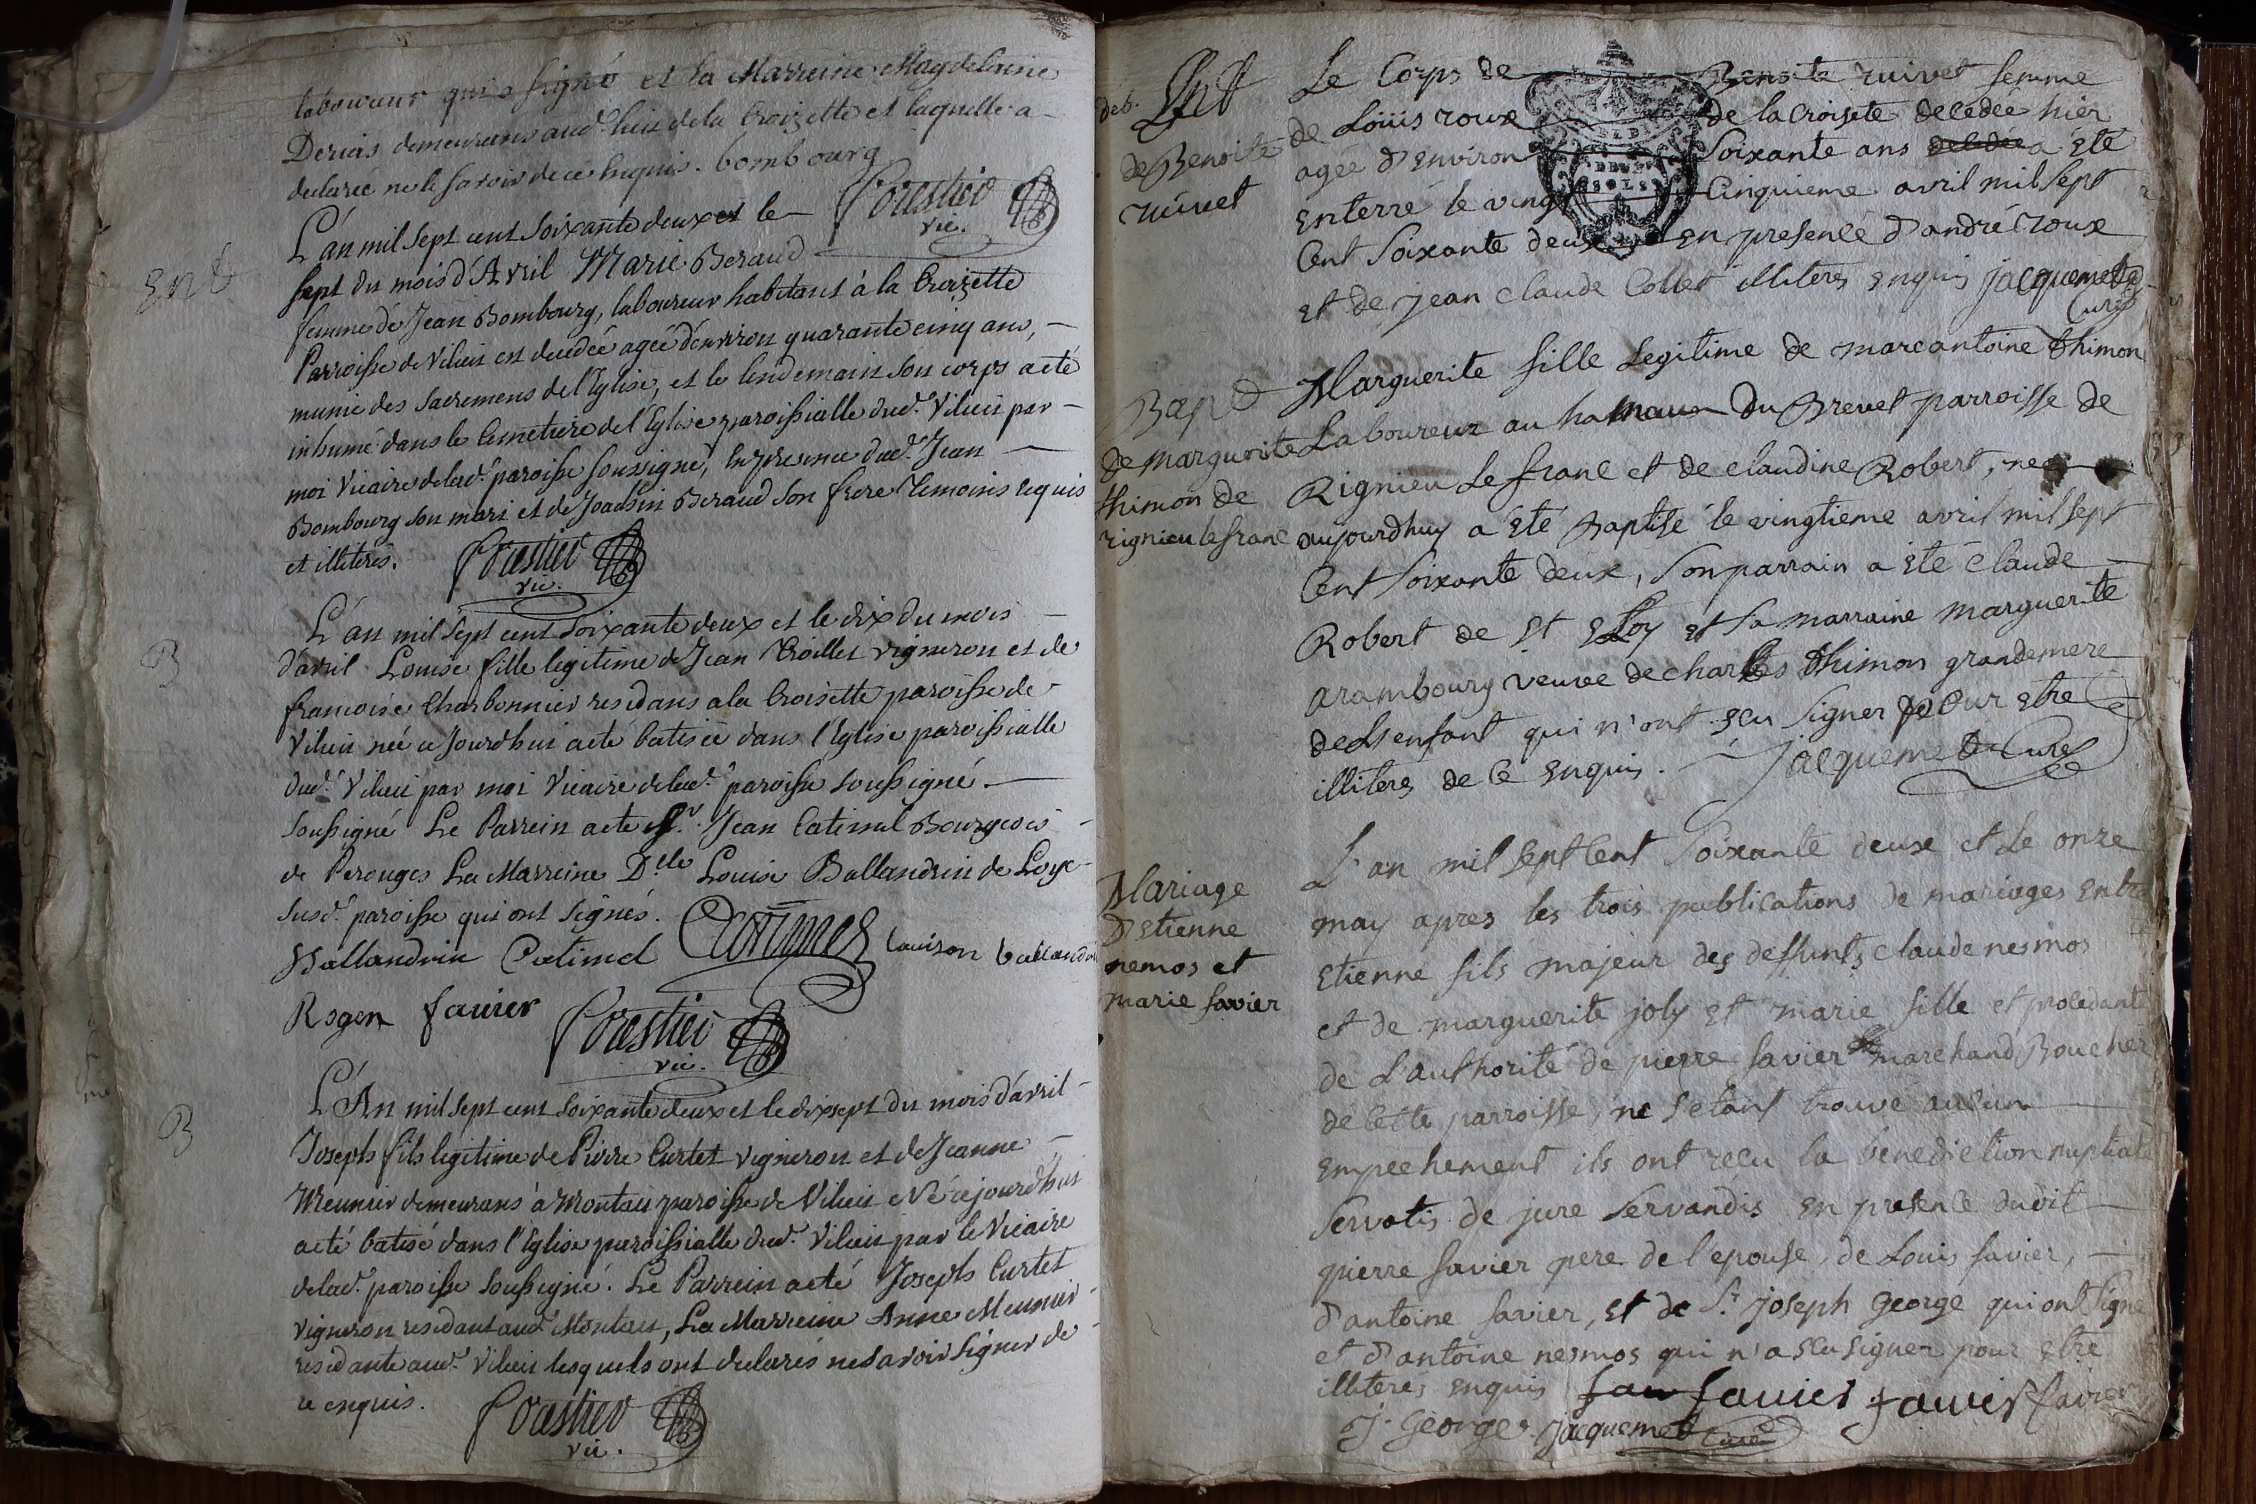 laboureur qui a signé et la Marreine Magdelaine
Derias demeurans aud. lieu de la Croizette et laquelle a
declaréé ne le savoir de ce enquis. bombourg
Forestier
vic.
Ent
L'an mil sept cent soixante deux et le
sept du mois d'Avril Marie Beraud
femme de Jean Bombourg, laboureur habitant à la Croizette
Parroisse de Vilieu est decedée agée d'environ quarante cinq ans,
munie des sacremens de l'Eglise, et le lendemain son corps a eté
inhumé dans le Cimetiere de l'Eglise paroissialle dud. Vilieu par
moi Vicaire de lad. paroisse soussigné, En presence dud. Jean
Bombourg son mari et de Joachin Beraud son frere temoins requis
et illiteres.
Forestier
vic.
B
L'an mil sept cent soixante deux et le dix du mois
d'avril Louise fille legitime de Jean Troillet vigneron et de
francoise Charbonnier residans a la Croisette paroisse de
Vilieu née ce Jourd'hui a eté batisée dans l'Eglise paroissialle
dud. Vilieu par moi Vicaire de lad. paroisse soussigné
soussigné Le Parrein a eté Sr. Jean Catimel Bourgeois
de Perouges La Marreine Dlle Louise Ballandrin de Loye
susd. paroisse qui ont signés.
Ballandrin Catimel Catimel Louison ballandrin
Rogen favier
Forestier
vic.
B
L'An mil sept cent soixante deux et le dixsept du mois d'avril
Joseph fils legitime de Pierre Curtet vigneron et de Jeanne
Meunier demeurans à Montau paroisse de Vilieu Né cejourd'hui
a eté batisé dans l'Eglise paroissialle dud. Vilieu par le Vicaire
de lad. paroisse soussigné. Le Parrein a eté Joseph Curtet
vigneron residant aud. Montau, La Marreine Anne Meunier
residante aud. Vilieu lesquels ont declarés ne savoir signer de
ce enquis.
Forestier
vic.
Ent
de Benoite
ruivet
Le Corps de Benoite ruivet femme
de Loüis roux de la Croisete decedée hier
agée d'environ soixante ans decedée a été
Enterré le vingt Cinquieme avril mil sept
Cent soixante deux en presence d'andré roux
et de jean claude Collet illiteres enquis jacquemet
Curé
Bapt
de marguerite
thimon de
rignieu lefranc
Marguerite fille Legitime de marcantoine thimon
Laboureur au hamaux du Brevet parroisse de
Rignieu Le franc et de claudine Robert, nee
aujourdhuy a été Baptisé le vingtieme avril mil sept
Cent soixante deux, son parrain a été claude
Robert de St Eloy et sa marraine marguerite
arambourg veuve de charles thimon grandemere
de lenfant qui n'ont sçu signer pour etre
illiteres de ce enquis. Jacquemet Curé
Mariage
d'etienne
nemos et
marie favier
L'an mil sept Cent soixante deux et Le onze
may apres les trois publications de mariages entre
etienne fils majeur des deffunts claude nesmos
et de marguerite joly et marie fille et procedante
de L'authorité de pierre favier marchand Boucher
de cette parroisse, ne s'etant trouve aucun
empechement ils ont reçu la benediction nuptiale
servatis de jure servandis en presence dudit
pierre favier pere de l'epouse, de Louis favier,
d'antoine favier, et de Sr. joseph George qui ont signé
et d'antoine nesmos qui n'a sçu signer pour etre
illiterés enquis fav favier favier favier
J. George jacquemet Curé